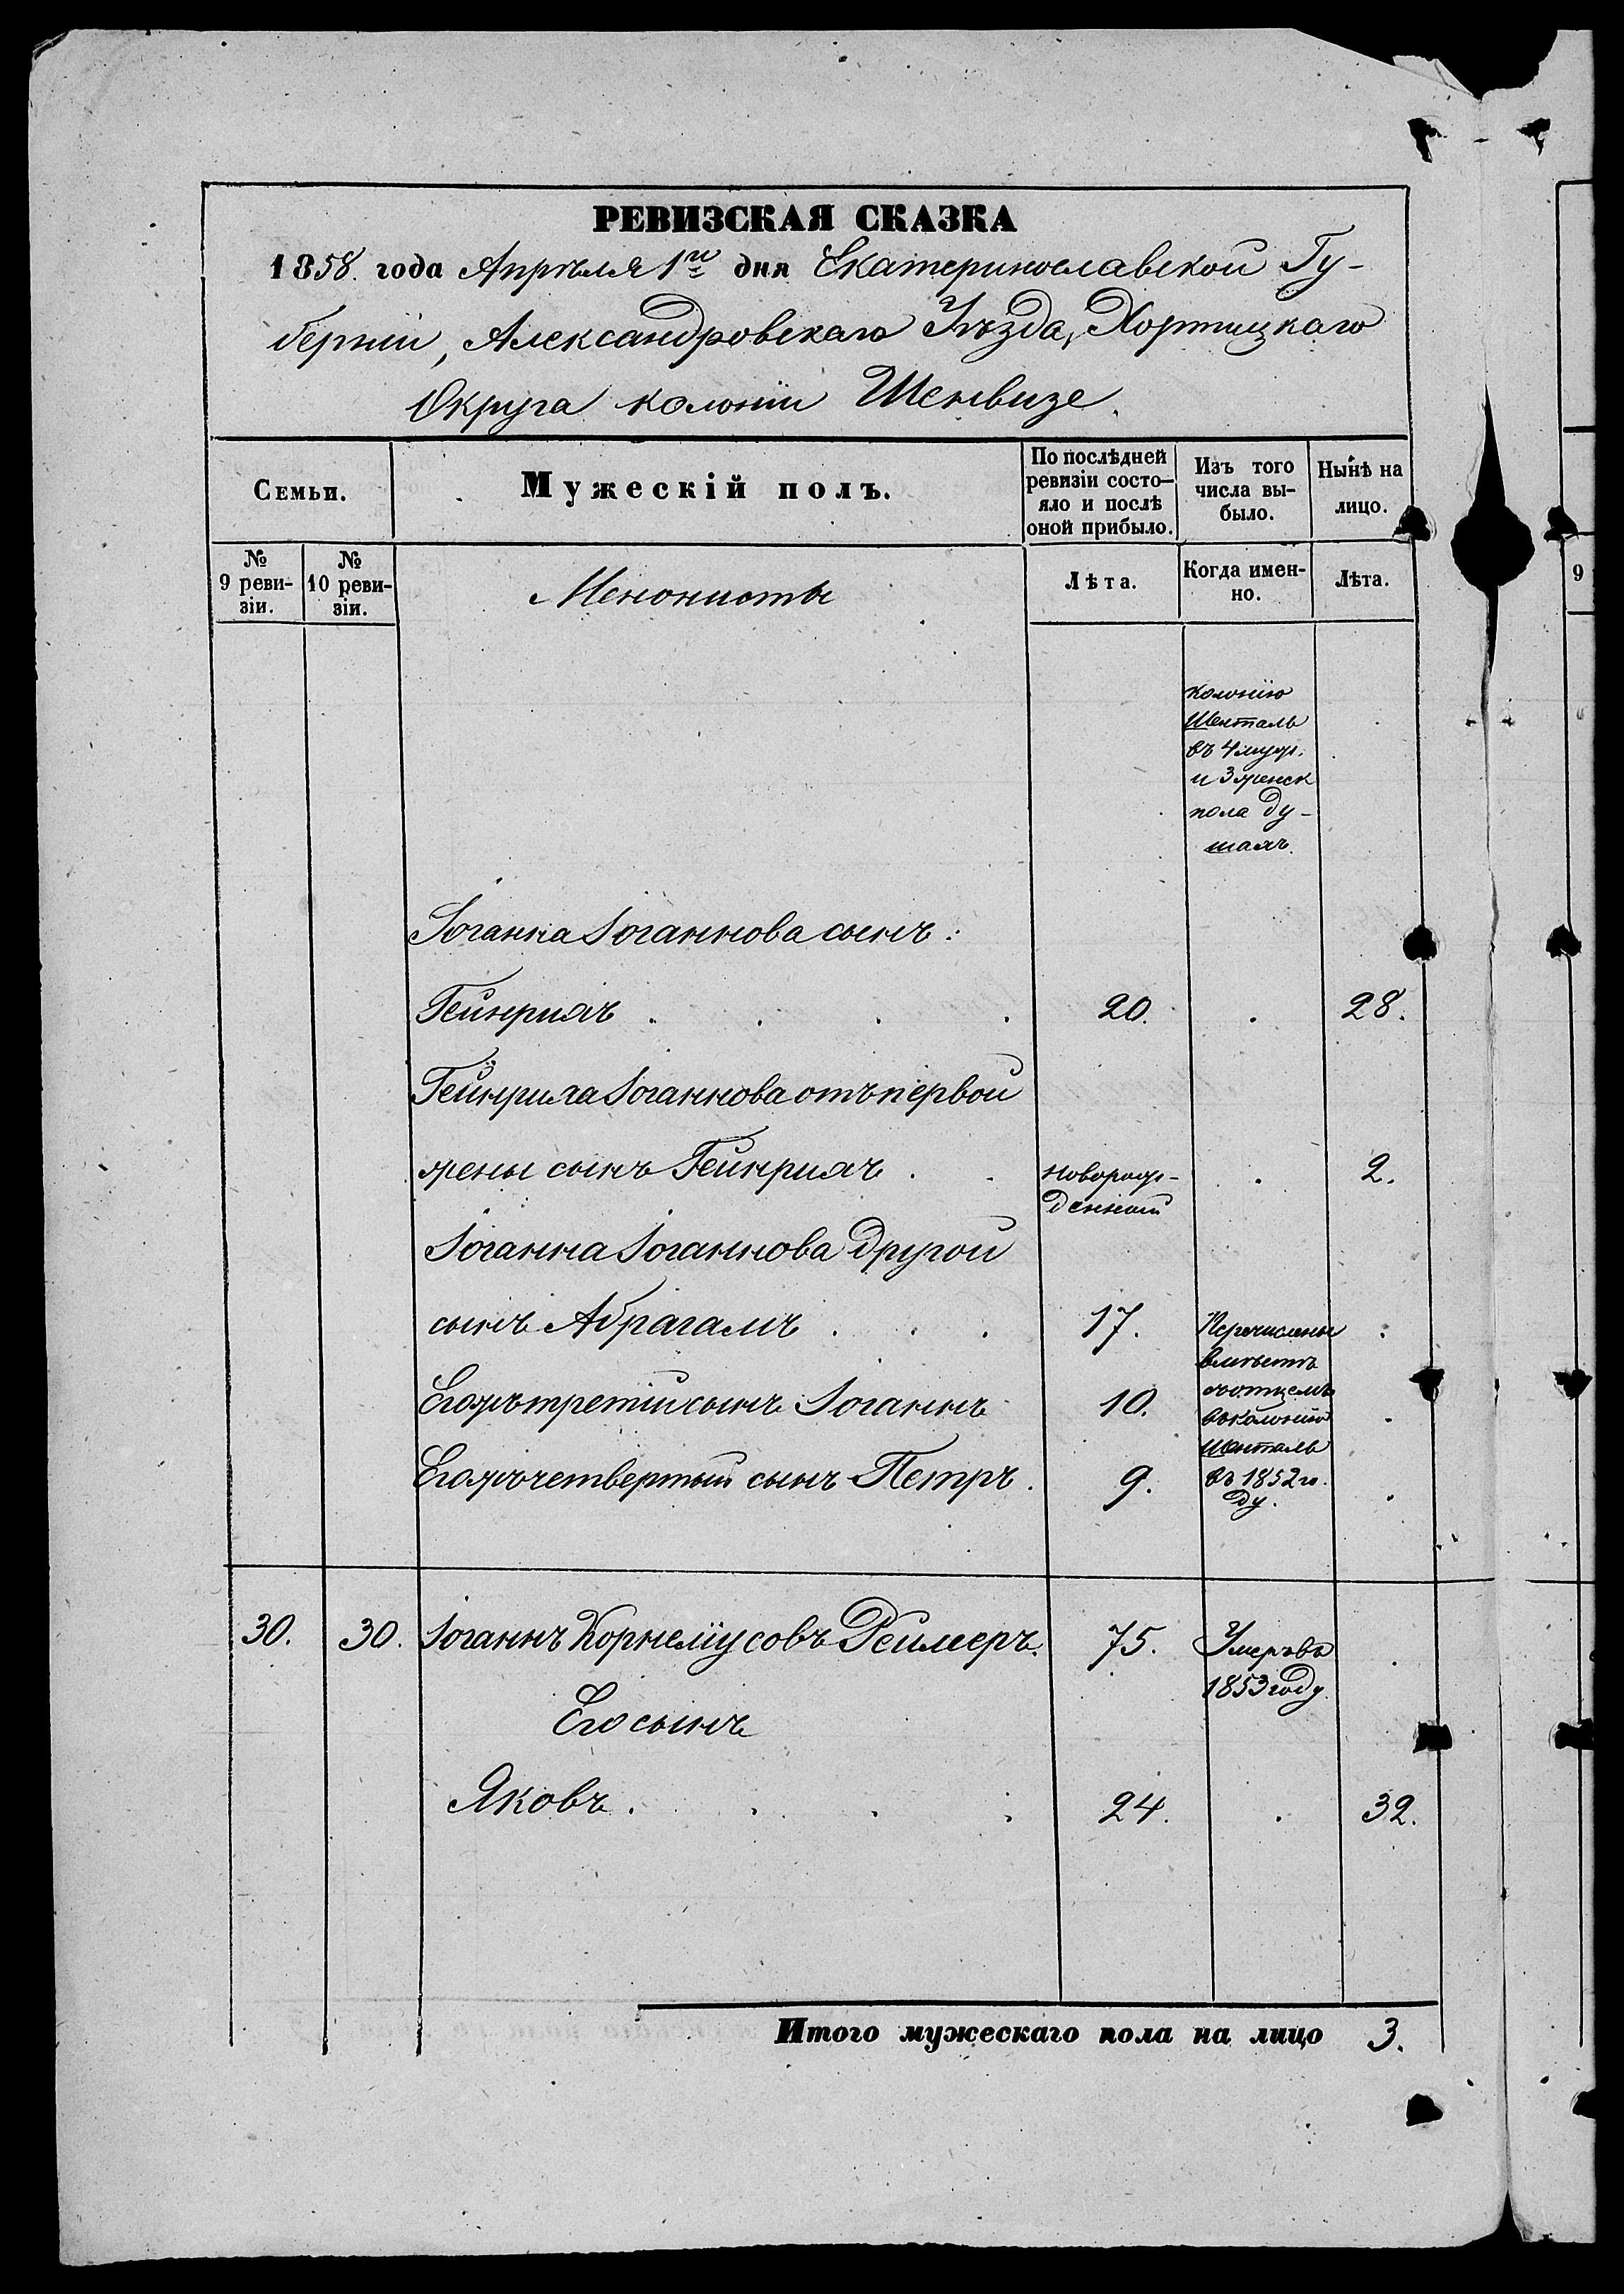 РЕВИЗСКАЯ СКАЗКА
1858. года Апрѣля 1го дня Екатеринославской Гу-
берніи, Александровскаго Уѣзда, Хортицкаго
Округа колоніи Шенвизе.
Семьи.
Мужескій полъ.
По послѣдней
ревизіи состо-
яло и послѣ
оной прибыло.
Изъ того
числа вы-
было.
Нынѣ на
лицо.
№
9 реви-
зіи.
№
10 реви-
зіи.
Менонисты
Лѣта.
Когда имен-
но.
Лѣта.
9
колонію
Шенталь
въ 4 муж.
и 3 женск
пола ду-
шахъ.
Іоганна Іоганнова сынъ:
Гейнрихъ . . . . 20. . 28.
Гейнриха Іоганнова отъ первой
жены сынъ Гейнрихъ . . новорож- . 2.
денный
Іоганна Іоганнова другой
сынъ Абрагамъ . . . 17.
Перечислены
вмѣстѣ
съ отцемъ
въ колонію
Шенталь
въ 1852 го-
ду.
Его жъ третій сынъ Іоганнъ 10.
Его жъ четвертый сынъ Петръ . 9.
30. 30. Іоганнъ Корнеліусовъ Реймеръ. 75. Умеръ въ
1853 году.
Его сынъ
Яковъ . . . . 24. . 32.
Итого мужескаго пола на лицо 3.